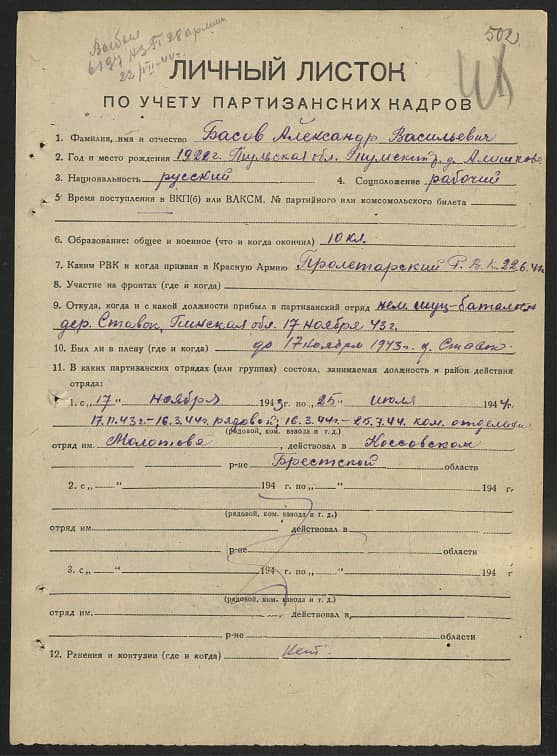 Выбыл
22/VII-44 г.
502
ЛИЧНЫЙ ЛИСТОК
ПО УЧЕТУ ПАРТИЗАНСКИХ КАДРОВ
1. Фамилия, имя и отчество Басов Александр Васильевич
2. Год и место рождения 1922 г. Тульская обл.
3. Национальность русский 4. Соцположение рабочий
5. Время поступления в ВКП(б) или ВЛКСМ. № партийного или комсомольского билета
6. Образование: общее и военное (что и когда окончил) 10 кл.
7. Каким РВК и когда призван в Красную Армию Пролетарский Р.В.К. 22.6.41 г.
8. Участие на фронтах (где и когда)
9. Откуда, когда и с какой должности прибыл в партизанский отряд нем. шуц-батальон
дер. Ставок, Пинская обл. 17 ноября 43 г.
10. Был ли в плену (где и когда) до 17 ноября 1943 г. д. Ставок.
11. В каких партизанских отрядах (или группах) состоял, занимаемая должность и район действия
отряда:
1. с „17" ноября 1943 г. по „25" июля 1944 г.
17.11.43 г. - 16.3.44 г. рядовой; 16.3.44 г. - 25.7.44. ком. отделения
(рядовой, ком. взвода и т. д.)
отряд им. Молотова, действовал в Коссовском
р-не Брестской области
2. с „ " 194 г. по „ " 194 г.
(рядовой, ком. взвода и т. д.)
отряд им. действовал в
р-не области
3. с „ " 194 г. по „ " 194 г
(рядовой, ком. взвода и т. д.)
отряд им. , действовал в
р-не области
12. Ранения и контузии (где и когда) нет.